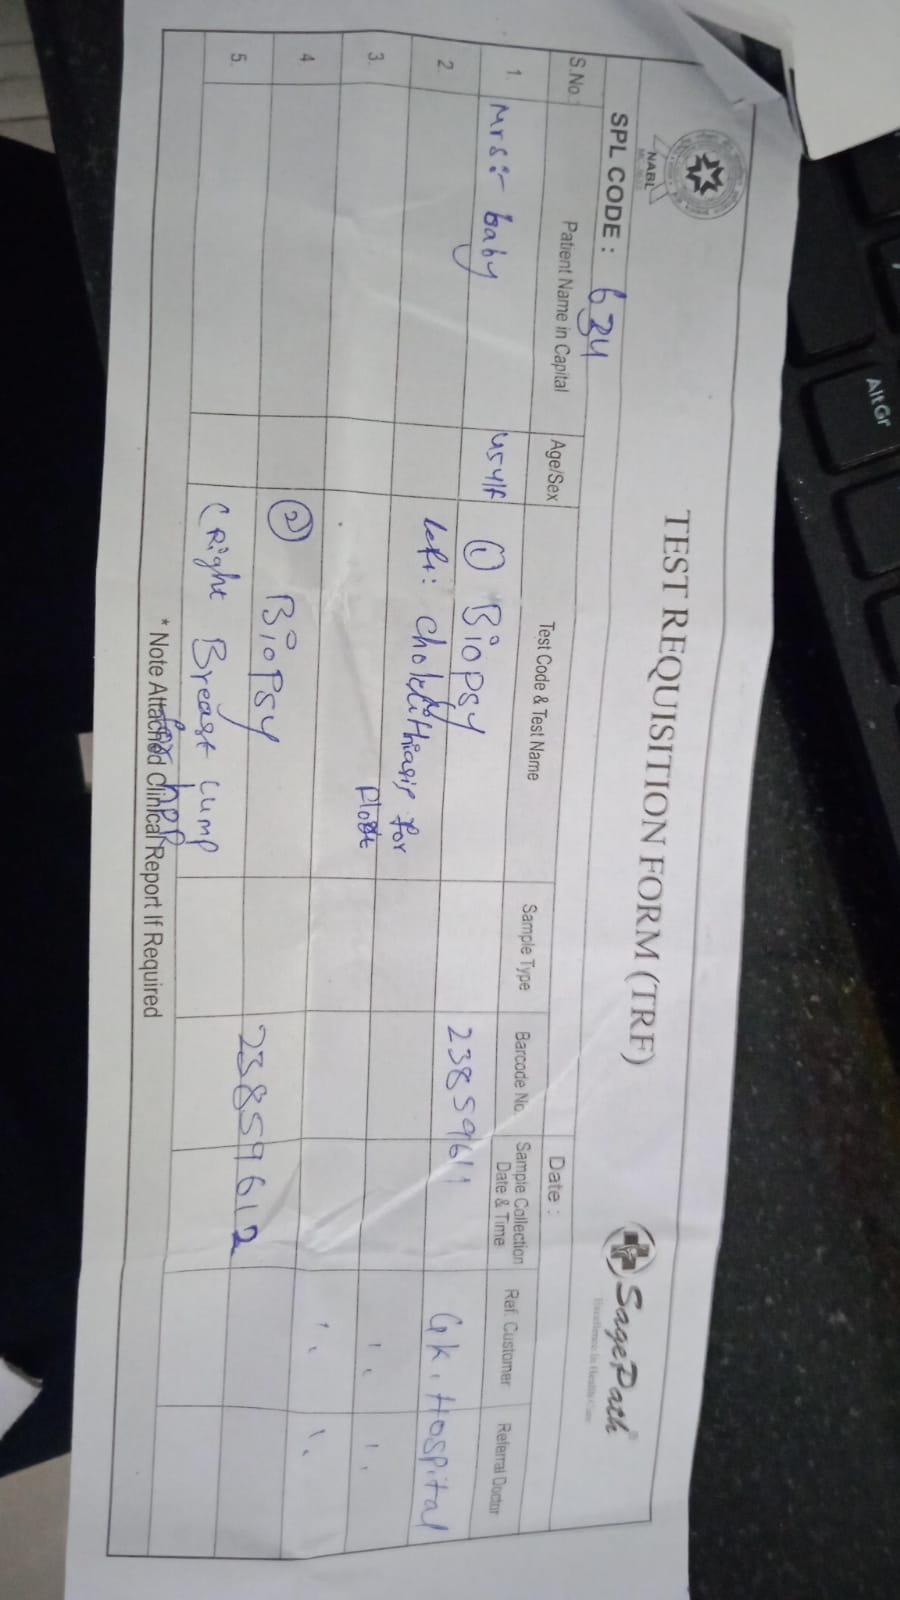 TEST REQUISITION FORM (TRF)
NABL
SagePath®
Excellence In Health Care
SPL CODE : 634
Date :
S.No. Patient Name in Capital Age/Sex Test Code & Test Name Sample Type Barcode No. Sample Collection Date & Time Ref. Customer Referral Doctor
1. Mrs:- baby 45y/F ① Biopsy 23859611 GK. Hospital
2. left: for
3.
4 ② Biopsy 23859612
5. (Right Breast Lump
for HPR
* Note Attached Clinical Report If Required
AltGr